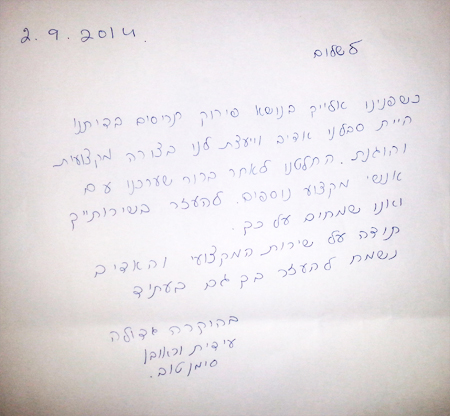 2.9.2014.
לשלום
כשפנינו אלייך בנושא פירוק תריסים בביתנו
היית סבלני אדיב וייעצת לנו בצורה מקצועית
והוגנת. החלטנו לאחר ברור שערכנו עם
אנשי מקצוע נוספים. להעזר בשירותייך
ואנו שמחים על כך.
תודה על שירות המקצועי והאדיב
נשמח להעזר בך גם בעתיד
בהוקרה גדולה
עידית וראובן
סימן טוב.